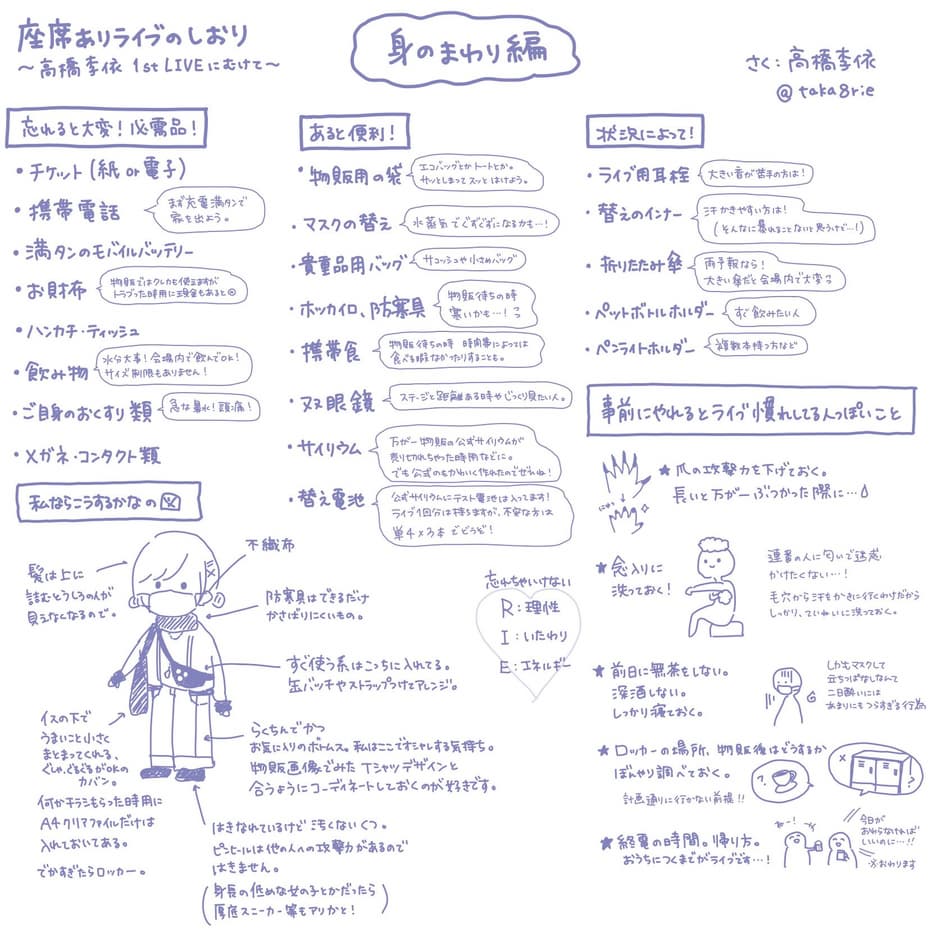 座席ありライブのしおり
〜高橋李依 1st LIVEにむけて〜
身のまわり編
さく：高橋李依
@taka8rie
忘れると大変！必需品！
・チケット(紙or電子)
・携帯電話
まず充電満タンで
家を出よう。
・満タンのモバイルバッテリー
・お財布
物販ではクレカも使えますが
トラブった時用に現金もあると◎
・ハンカチ・ティッシュ
・飲み物
水分大事！会場内で飲んでOK！
サイズ制限もありません！
・ご自身のおくすり類
急な鼻水！頭痛！
・メガネ・コンタクト類
あると便利！
・物販用の袋
エコバッグとかトートとか。
サッとしまってスッとはけよう。
・マスクの替え
水蒸気でぐずぐずになるかも…！
・貴重品用バッグ
サコッシュや小さめバッグ
・ホッカイロ、防寒具
物販待ちの時
寒いかも…！
・携帯食
物販待ちの時 時間帯によっては
食べる暇なかったりすることも。
・双眼鏡
ステージと距離ある時やじっくり見たい人。
・サイリウム
万が一物販の公式サイリウムが
売り切れちゃった時用などに。
でも公式のもかわいく作れたのでぜひね！
・替え電池
公式サイリウムにテスト電池は入ってます！
ライブ1回分は持ちますが、不安な方は
単4×3本でどうぞ！
状況によって！
・ライブ用耳栓
大きい音が苦手の方は！
・替えのインナー
汗かきやすい方は！
(そんなに暴れることないと思うけど…！)
・折りたたみ傘
雨予報なら！
大きい傘だと会場内で大変
・ペットボトルホルダー
すぐ飲みたい人
・ペンライトホルダー
複数本持つ方など
事前にやれるとライブ慣れしてる人っぽいこと
★爪の攻撃力を下げておく。
長いと万が一ぶつかった際に…
★念入りに
洗っておく！
連番の人に匂いで迷惑
かけたくない…！
毛穴から汗をかきに行くわけだから
しっかり、ていねいに洗っておく。
★前日に無茶をしない。
深酒しない。
しっかり寝ておく。
しかもマスクして
立ちっぱなしなんて
二日酔いには
あまりにもつらすぎる行為
★ロッカーの場所、物販後はどうするか
ぼんやり調べておく。
計画通りに行かない前提！！
★終電の時間。帰り方。
おうちにつくまでがライブです…！
ねー！
今日が
おわらなければ
いいのに…！！
※おわります
私ならこうするかなの図
髪は上に
詰むとうしろの人が
見えなくなるので。
不織布
防寒具はできるだけ
かさばりにくいもの。
すぐ使う系はこっちに入れてる。
缶バッチやストラップつけてアレンジ。
イスの下で
うまいこと小さく
まとまってくれる、
ぐしゃぐしゃがOKの
カバン。
何かチラシもらった時用に
A4クリアファイルだけは
入れておいてある。
でかすぎたらロッカー。
らくちんでかつ
お気に入りのボトムス。私はここでオシャレする気持ち。
物販画像でみたTシャツデザインと
合うようにコーディネートしておくのが好きです。
はきなれているけど汚くないくつ。
ピンヒールは他の人への攻撃力があるので
はきません。
(身長の低めな女の子とかだったら
厚底スニーカー等もアリかと！)
忘れちゃいけない
R：理性
I：いたわり
E：エネルギー